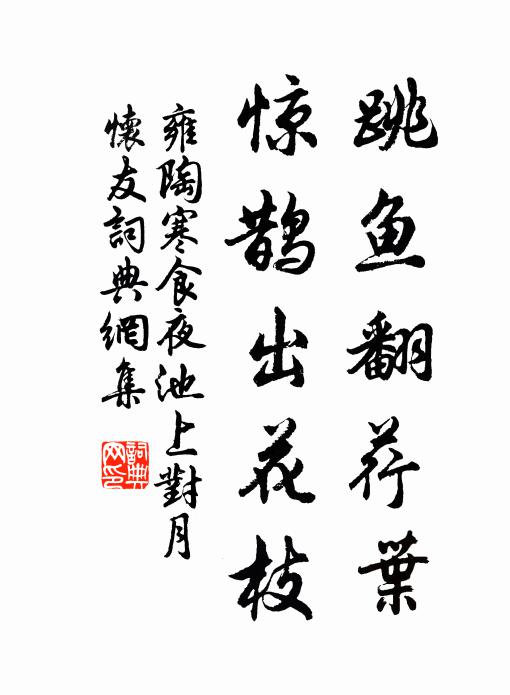 跳鱼翻荇葉
惊鹊出花枝
雍陶寒食夜池上對月
懷友詞典網集
詞典
网印